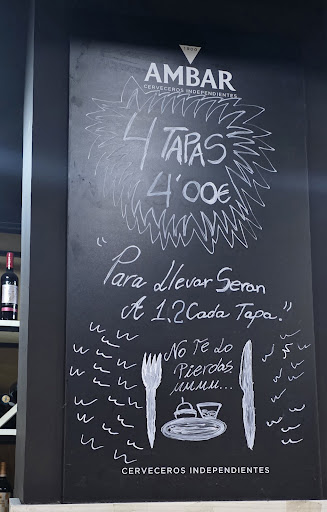 1900
AMBAR
CERVECEROS INDEPENDIENTES
4 TAPAS
4'00€
"Para llevar Seran
A 1,2 Cada Tapa."
No Te Lo
Pierdas
mmm...
CERVECEROS INDEPENDIENTES